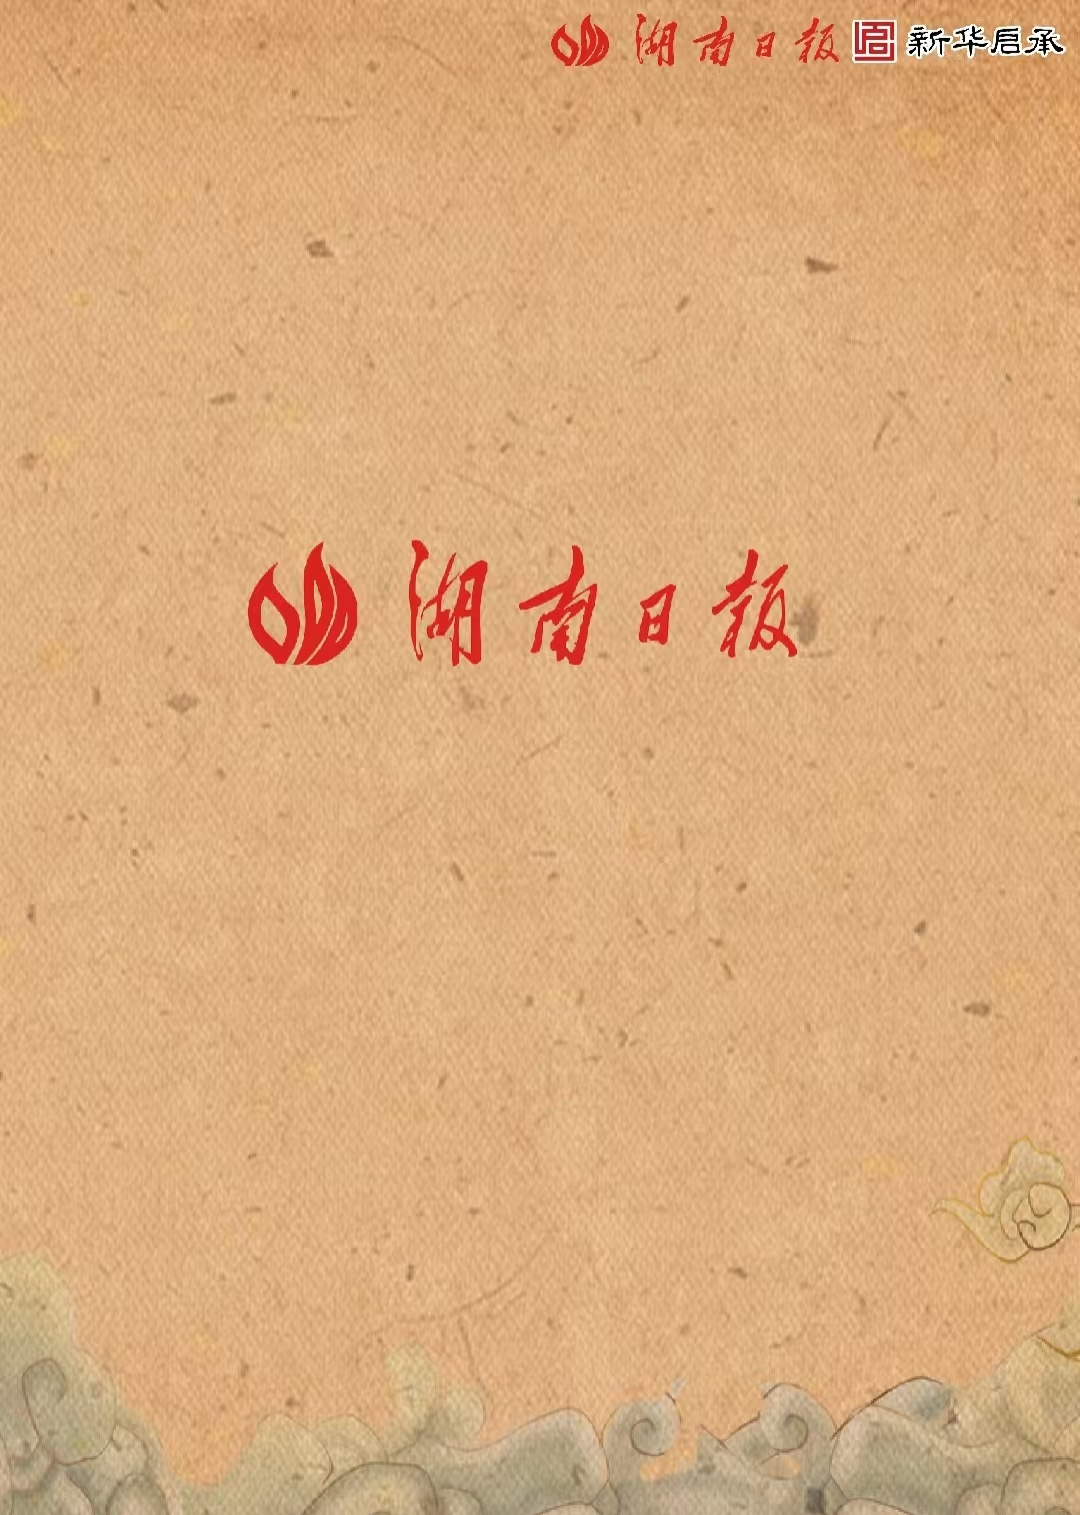 湖南日报 新华启承
湖南日报